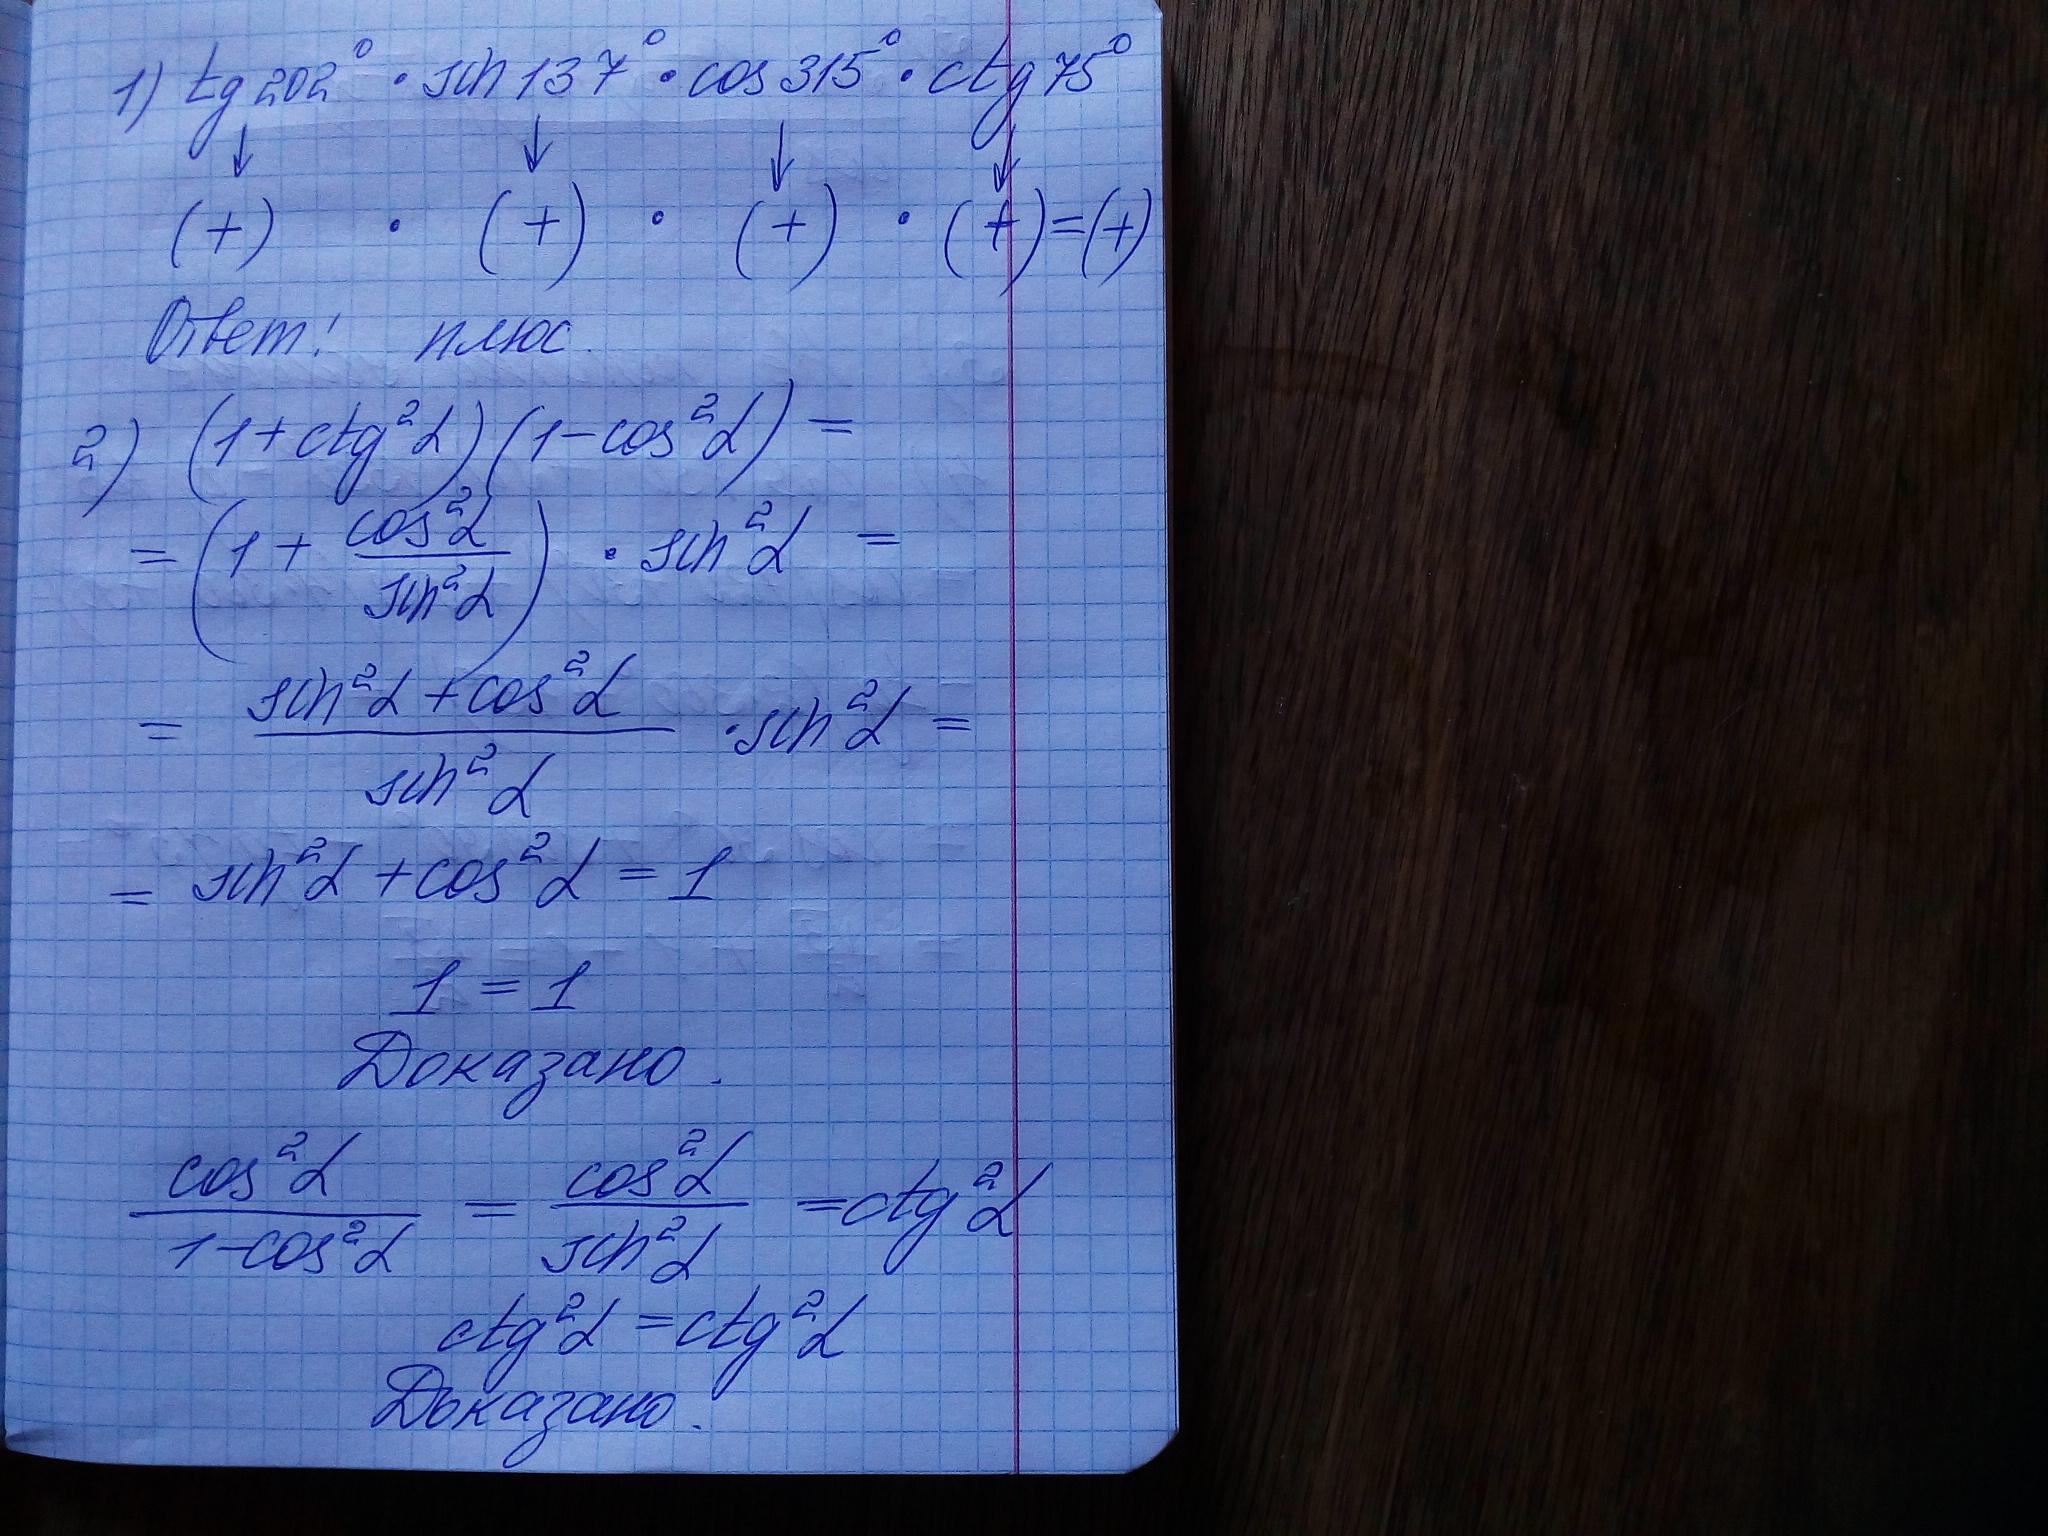 1) tg 202° · sin 137° · cos 315° · ctg 75°
↓ ↓ ↓ ↓
(+) · (+) · (+) · (+) = (+)
Ответ: плюс.
2) (1 + ctg²α)(1 − cos²α) =
= (1 + cos²α / sin²α) · sin²α =
= (sin²α + cos²α) / sin²α · sin²α =
= sin²α + cos²α = 1
1 = 1
Доказано.
cos²α / (1 − cos²α) = cos²α / sin²α = ctg²α
ctg²α = ctg²α
Доказано.